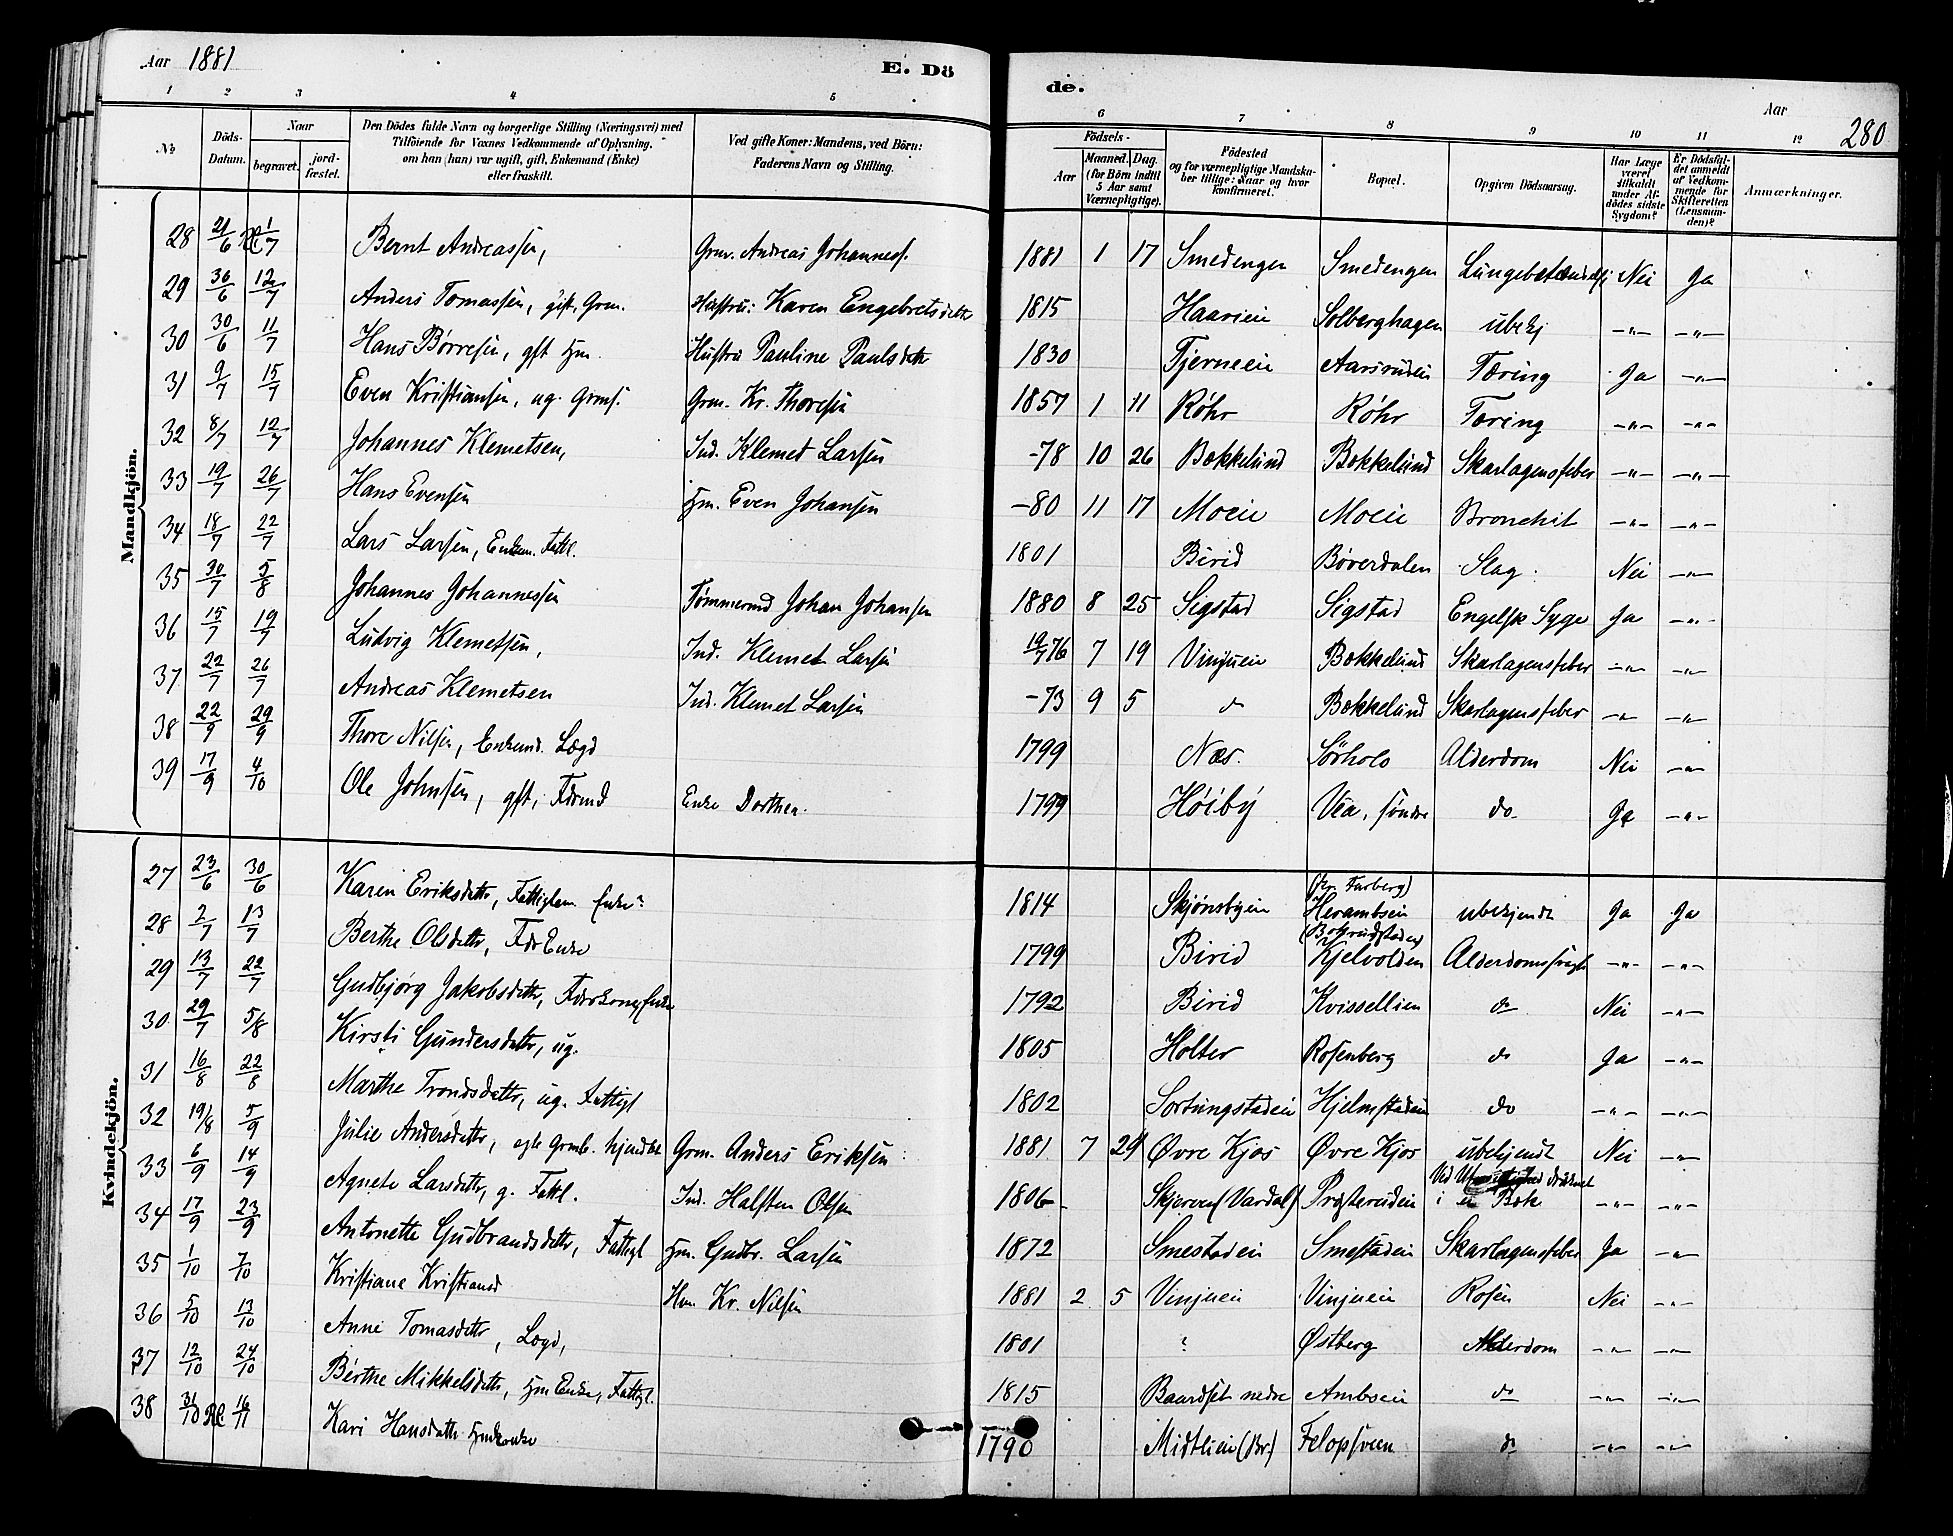 Aar 1881
E. Dö
de.
Aar
280
1 2 3 4 5 6 7 8 9 10 11 12
No
Döds-Datum.
Naar
begravet.
jord-fæstet.
Den Dödes fulde Navn og borgerlige Stilling (Næringsvei) med Tilföiende for Voxnes Vedkommende af Oplysning, om han (hun) var ugift, gift, Enkemand (Enke) eller fraskilt.
Ved gifte Koner: Mandens, ved Börn: Faderens Navn og Stilling.
Födsels-
Aar
Maaned. Dag.
(for Börn indtil 5 Aar samt Værnepligtige).
Födested og for værnepligtige Mandskaber tillige: Naar og hvor konfirmeret.
Bopæl.
Opgiven Dödsaarsag.
Har Læge været tilkaldt under Afdödes sidste Sygdom?
Er Dödsfaldet anmeldt af Vedkommende for Skifteretten (Lensmanden)?
Anmærkninger.
Mandkjön.
28 21/6 1/7 Bernt Andreassen, Grm. Andreas Johanness. 1881 1 17 Smedengen Smedengen Nei Ja
29 30/6 12/7 Anders Tomassen, gift, Grm. Hustru: Karen Engebretsdatt 1815 Haarieie Solberghagen ubekj -"- -"-
30 30/6 11/7 Hans Børresen, gft Hm. Hustru Pauline Paulsdatt 1830 Tjerneeie Tæring Ja -"-
31 9/7 15/7 Even Kristiansen, ug. Grms. Grm. Kr. Thoresen 1857 1 11 Røhr Røhr Tæring -"- -"-
32 8/7 12/7 Johannes Klemetsen, Ind. Klemet Larsen -78 10 26 Bækkelund Bækkelund Skarlagensfeber -"- -"-
33 19/7 26/7 Hans Evensen Hm. Even Johansen -80 11 17 Moeie Moeie Bronchit -"- -"-
34 18/7 22/7 Lars Larsen, Enkem. Fattl. 1801 Birid Bøverdalen Slag. Nei -"-
35 30/7 5/8 Johannes Johannessen Tømmermd Johan Johansen 1880 8 25 Sigstad Sigstad Engelsk Syge Ja -"-
36 15/7 19/7 Ludvig Klemetsen, Ind. Klemet Larsen 19/7 76 7 19 Vinjueie Bækkelund Skarlagensfeber -"- -"-
37 22/7 26/7 Andreas Klemetsen Ind. Klemet Larsen -73 9 5 do Bækkelund Skarlagensfeber -"- -"-
38 22/9 29/9 Thore Nilsen, Enkemd. Lægd 1799 Næs. Sørholo Alderdom Nei -"-
39 17/9 4/10 Ole Johnsen, gft, Førmd Enke Dorthea. 1799 Høiby Vea, søndre do Ja -"-
Kvindekjön.
27 23/6 30/6 Karen Eriksdatter, Fattiglem Enke? 1814 Skjønsbyeie ubekjendt Ja Ja
28 2/7 13/7 Berthe Olsdatter, FdrEnke 1799 Birid Kjelvolden -"- -"-
29 13/7 22/7 Gudbjørg Jakobsdatter, 1792 Birid Kvissellien do Nei -"-
30 29/7 5/8 Kirsti Gundersdatter, ug. 1805 Holter Rosenberg do Ja -"-
31 16/8 22/8 Marthe Trondsdatter, ug. Fattigl 1802 Sortungstadeie Hjelmstadeie do -"- -"-
32 19/8 5/9 Julie Andersdatter, Grm. Anders Eriksen 1881 7 29 Øvre Kjos Øvre Kjos ubekjendt Nei -"-
33 6/9 14/9 Agnete Larsdatter, g. Fattl. Ind. Halsten Olsen 1806 Skjerven (Vardal) Prøsterudeie i en Bæk -"- -"-
34 17/9 23/9 Antonette Gudbrandsdatter, Fattigl Hm. Gudbr. Larsen 1872 Smestadeie Smestadeie Skarlagensfeber Ja -"-
35 1/10 7/10 Kristiane Kristiansd Hm. Kr. Nilsen 1881 2 5 Vinjueie Vinjueie Rosen Nei -"-
36 5/10 13/10 Anne Tomasdatter, Lægd, 1801 ? Østberg Alderdom -"- -"-
37 12/10 24/10 Berthe Mikkelsdatter, Hm Enke, Fattigl. 1815 Baardset nedre Ambseie do -"- -"-
38 31/10 16/11 Kari Hansdatter 1790 Midtlien (Br.) Felopsveen do -"- -"-